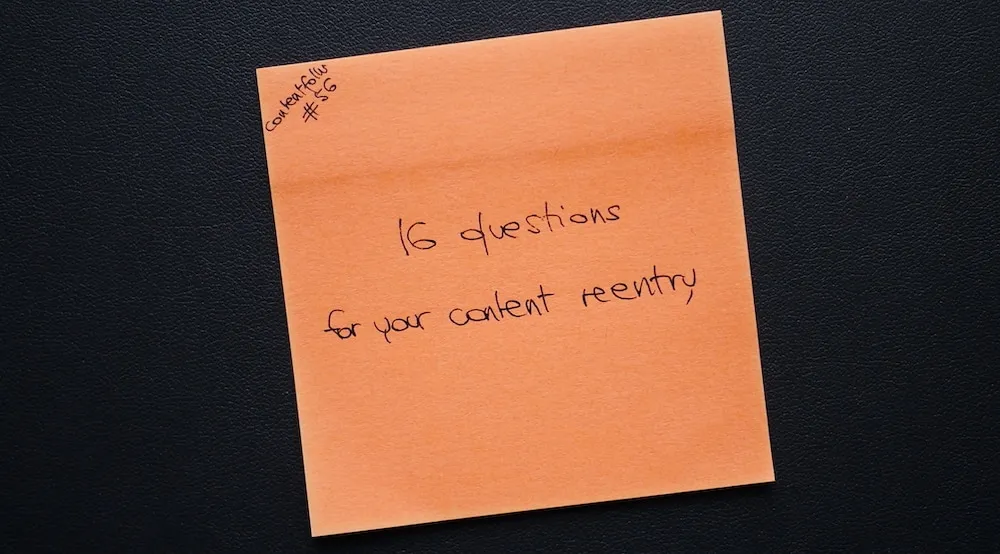 Contentfolks
#56
16 questions
for your content reentry